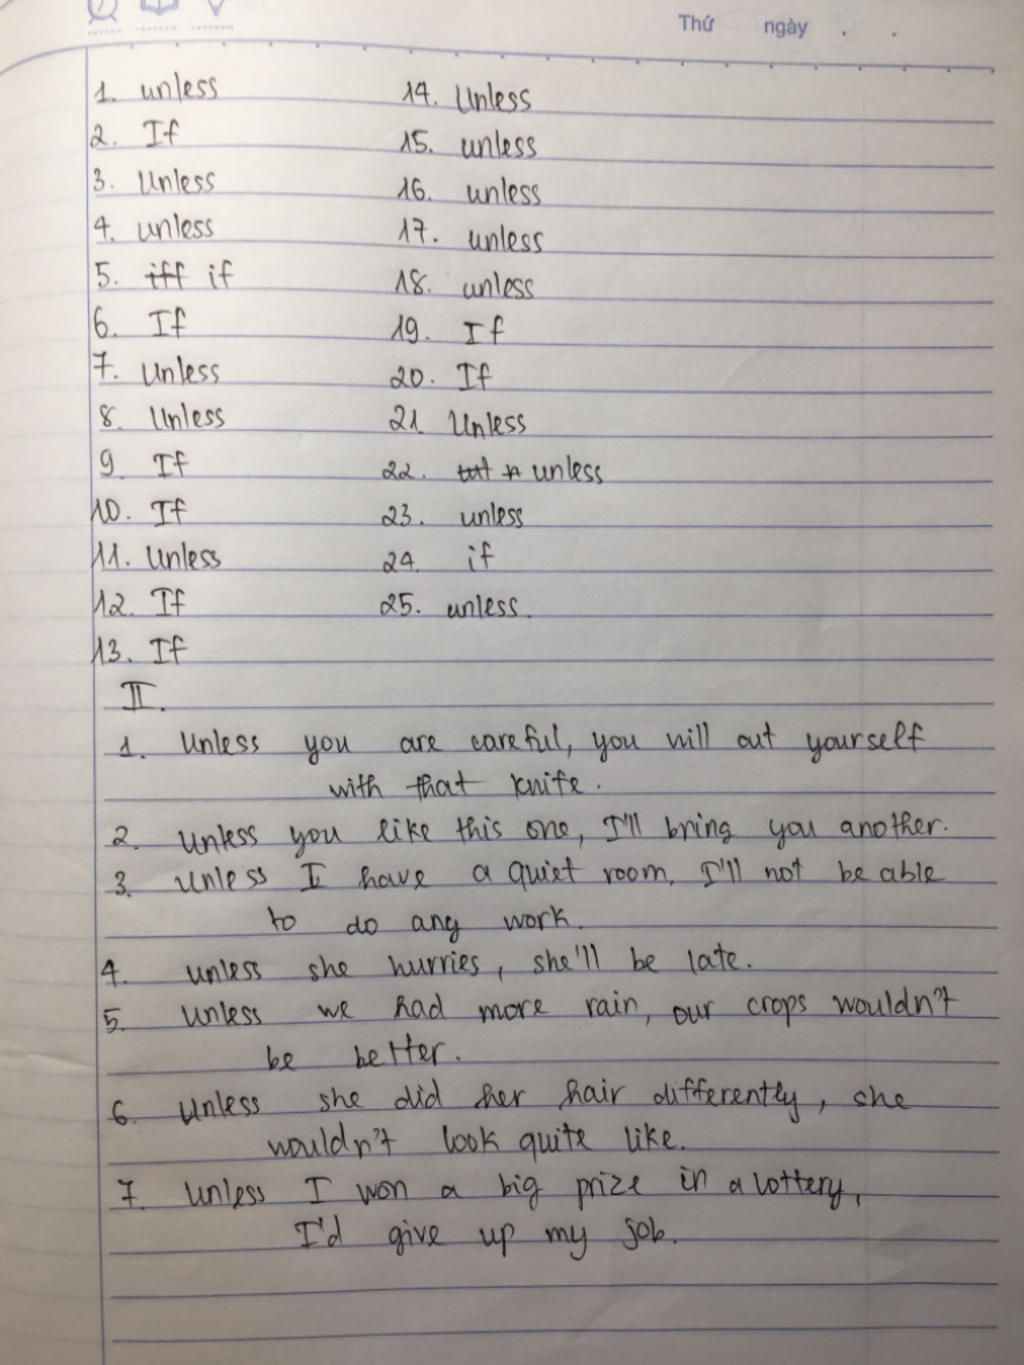 Thứ ngày . .
1. unless
2. If
3. Unless
4. unless
5. iff if
6. If
7. Unless
8. Unless
9. If
10. If
11. Unless
12. If
13. If
14. Unless
15. unless
16. unless
17. unless
18. unless
19. If
20. If
21. Unless
22. unless
23. unless
24. if
25. unless.
II.
1. Unless you are careful, you will cut yourself
with that knife.
2. Unless you like this one, I'll bring you another.
3. Unless I have a quiet room, I'll not be able
to do any work.
4. unless she hurries, she'll be late.
5. Unless we had more rain, our crops wouldn't
be better.
6. Unless she did her hair differently, she
wouldn't look quite like.
7. Unless I won a big prize in a lottery,
I'd give up my job.